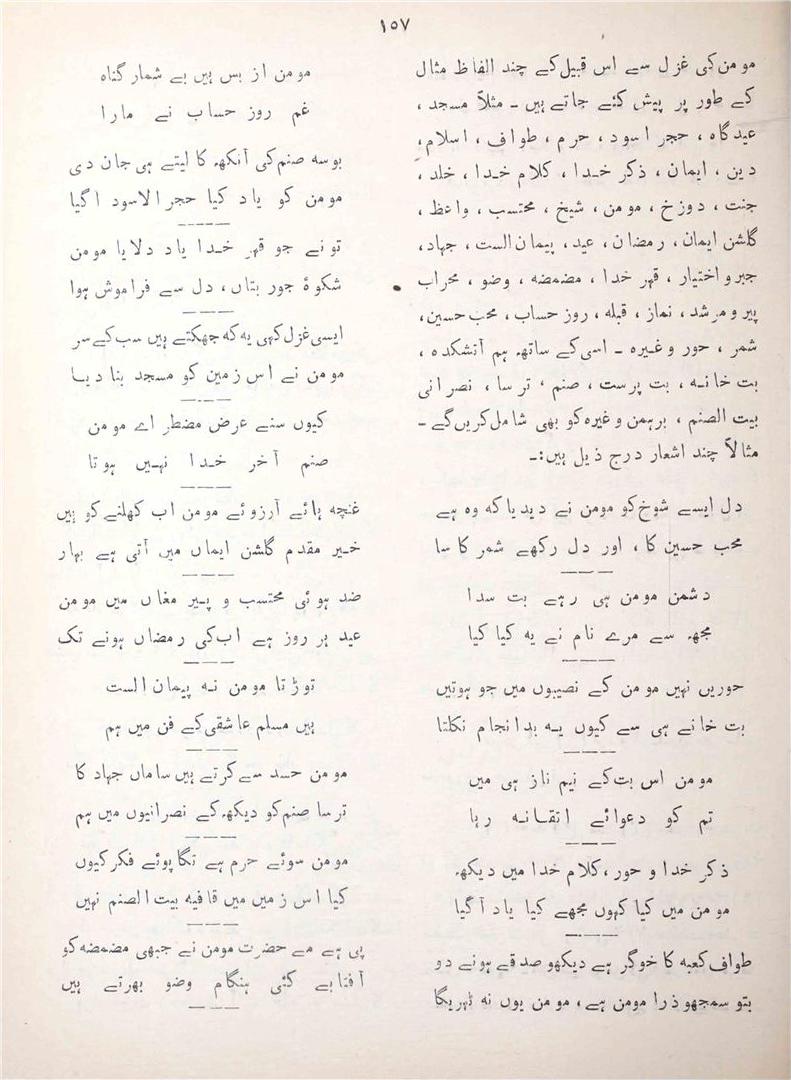 ۱۵۷
مومن کی غزل سے اس قبیل کے چند الفاظ مثال
کے طور پر پیش کئے جاتے ہیں ۔ مثلاً مسجد ،
عیدگاہ ، حجر اسود ، حرم ، طواف ، اسلام،
دین ، ایمان ، ذکر خدا ، کلام خدا ، خلد ،
جنت ، دوزخ ، مومن ، شیخ ، محتسب ، واعظ ،
گلشن ایمان ، رمضان ، عید ، پیمان الست ، جہاد،
جبر و اختیار ، قہر خدا ، مضمضہ ، وضو ، محراب
پیر و مرشد ، نماز ، قبلہ ، روز حساب ، محب حسین،
شمر ، حور وغیرہ ۔ اسی کے ساتھ ہم آتشکدہ ،
بت خانہ ، بت پرست ، صنم ، ترسا ، نصرانی
بیت الصنم ، برہمن وغیرہ کو بھی شامل کریں گے ۔
مثالاً چند اشعار درج ذیل ہیں:۔
دل ایسے شوخ کو مومن نے دیدیا کہ وہ ہے
محب حسین کا ، اور دل رکھے شمر کا سا
دشمن مومن ہی رہے بت سدا
مجھ سے مرے نام نے یہ کیا کیا
حوریں نہیں مومن کے نصیبوں میں جو ہوتیں
بت خانے ہی سے کیوں یہ بد انجام نکلتا
مومن اس بت کے نیم ناز ہی میں
تم کو دعوائے اتقا نہ رہا
ذکر خدا و حور ، کلام خدا میں دیکھ
مومن میں کیا کہوں مجھے کیا یاد آگیا
طواف کعبہ کا خوگر ہے دیکھو صدقے ہونے دو
بتو سمجھو ذرا مومن ہے ، مومن یوں نہ ٹہریگا
مومن از بس ہیں بے شمار گناہ
غم روز حساب نے مارا
بوسہ صنم کی آنکھ کا لیتے ہی جان دی
مومن کو یاد کیا حجر الاسود آگیا
تو نے جو قہر خدا یاد دلایا مومن
شکوۂ جور بتاں ، دل سے فراموش ہوا
ایسی غزل کہی یہ کہ جھکتے ہیں سب کے سر
مومن نے اس زمین کو مسجد بنا دیا
کیوں سنے عرض مضطر اے مومن
صنم آخر خدا نہیں ہوتا
غنچہ ہائے آرزوئے مومن اب کھلنے کو ہیں
خیر مقدم گلشن ایماں میں آتی ہے بہار
ضد ہوئی محتسب و پیر مغاں میں مومن
عید ہر روز ہے اب کی رمضاں ہونے تک
توڑتا مومن نہ پیمان الست
ہیں مسلم عاشقی کے فن میں ہم
مومن حسد سے کرتے ہیں ساماں جہاد کا
ترسا صنم کو دیکھ کے نصرانیوں میں ہم
مومن سوئے حرم ہے تگاپوئے فکر کیوں
کیا اس زمیں میں قافیہ بیت الصنم نہیں
پی ہے مے حضرت مومن نے جبھی مضمضہ کو
آفتابے کئی ہنگام وضو بھرتے ہیں